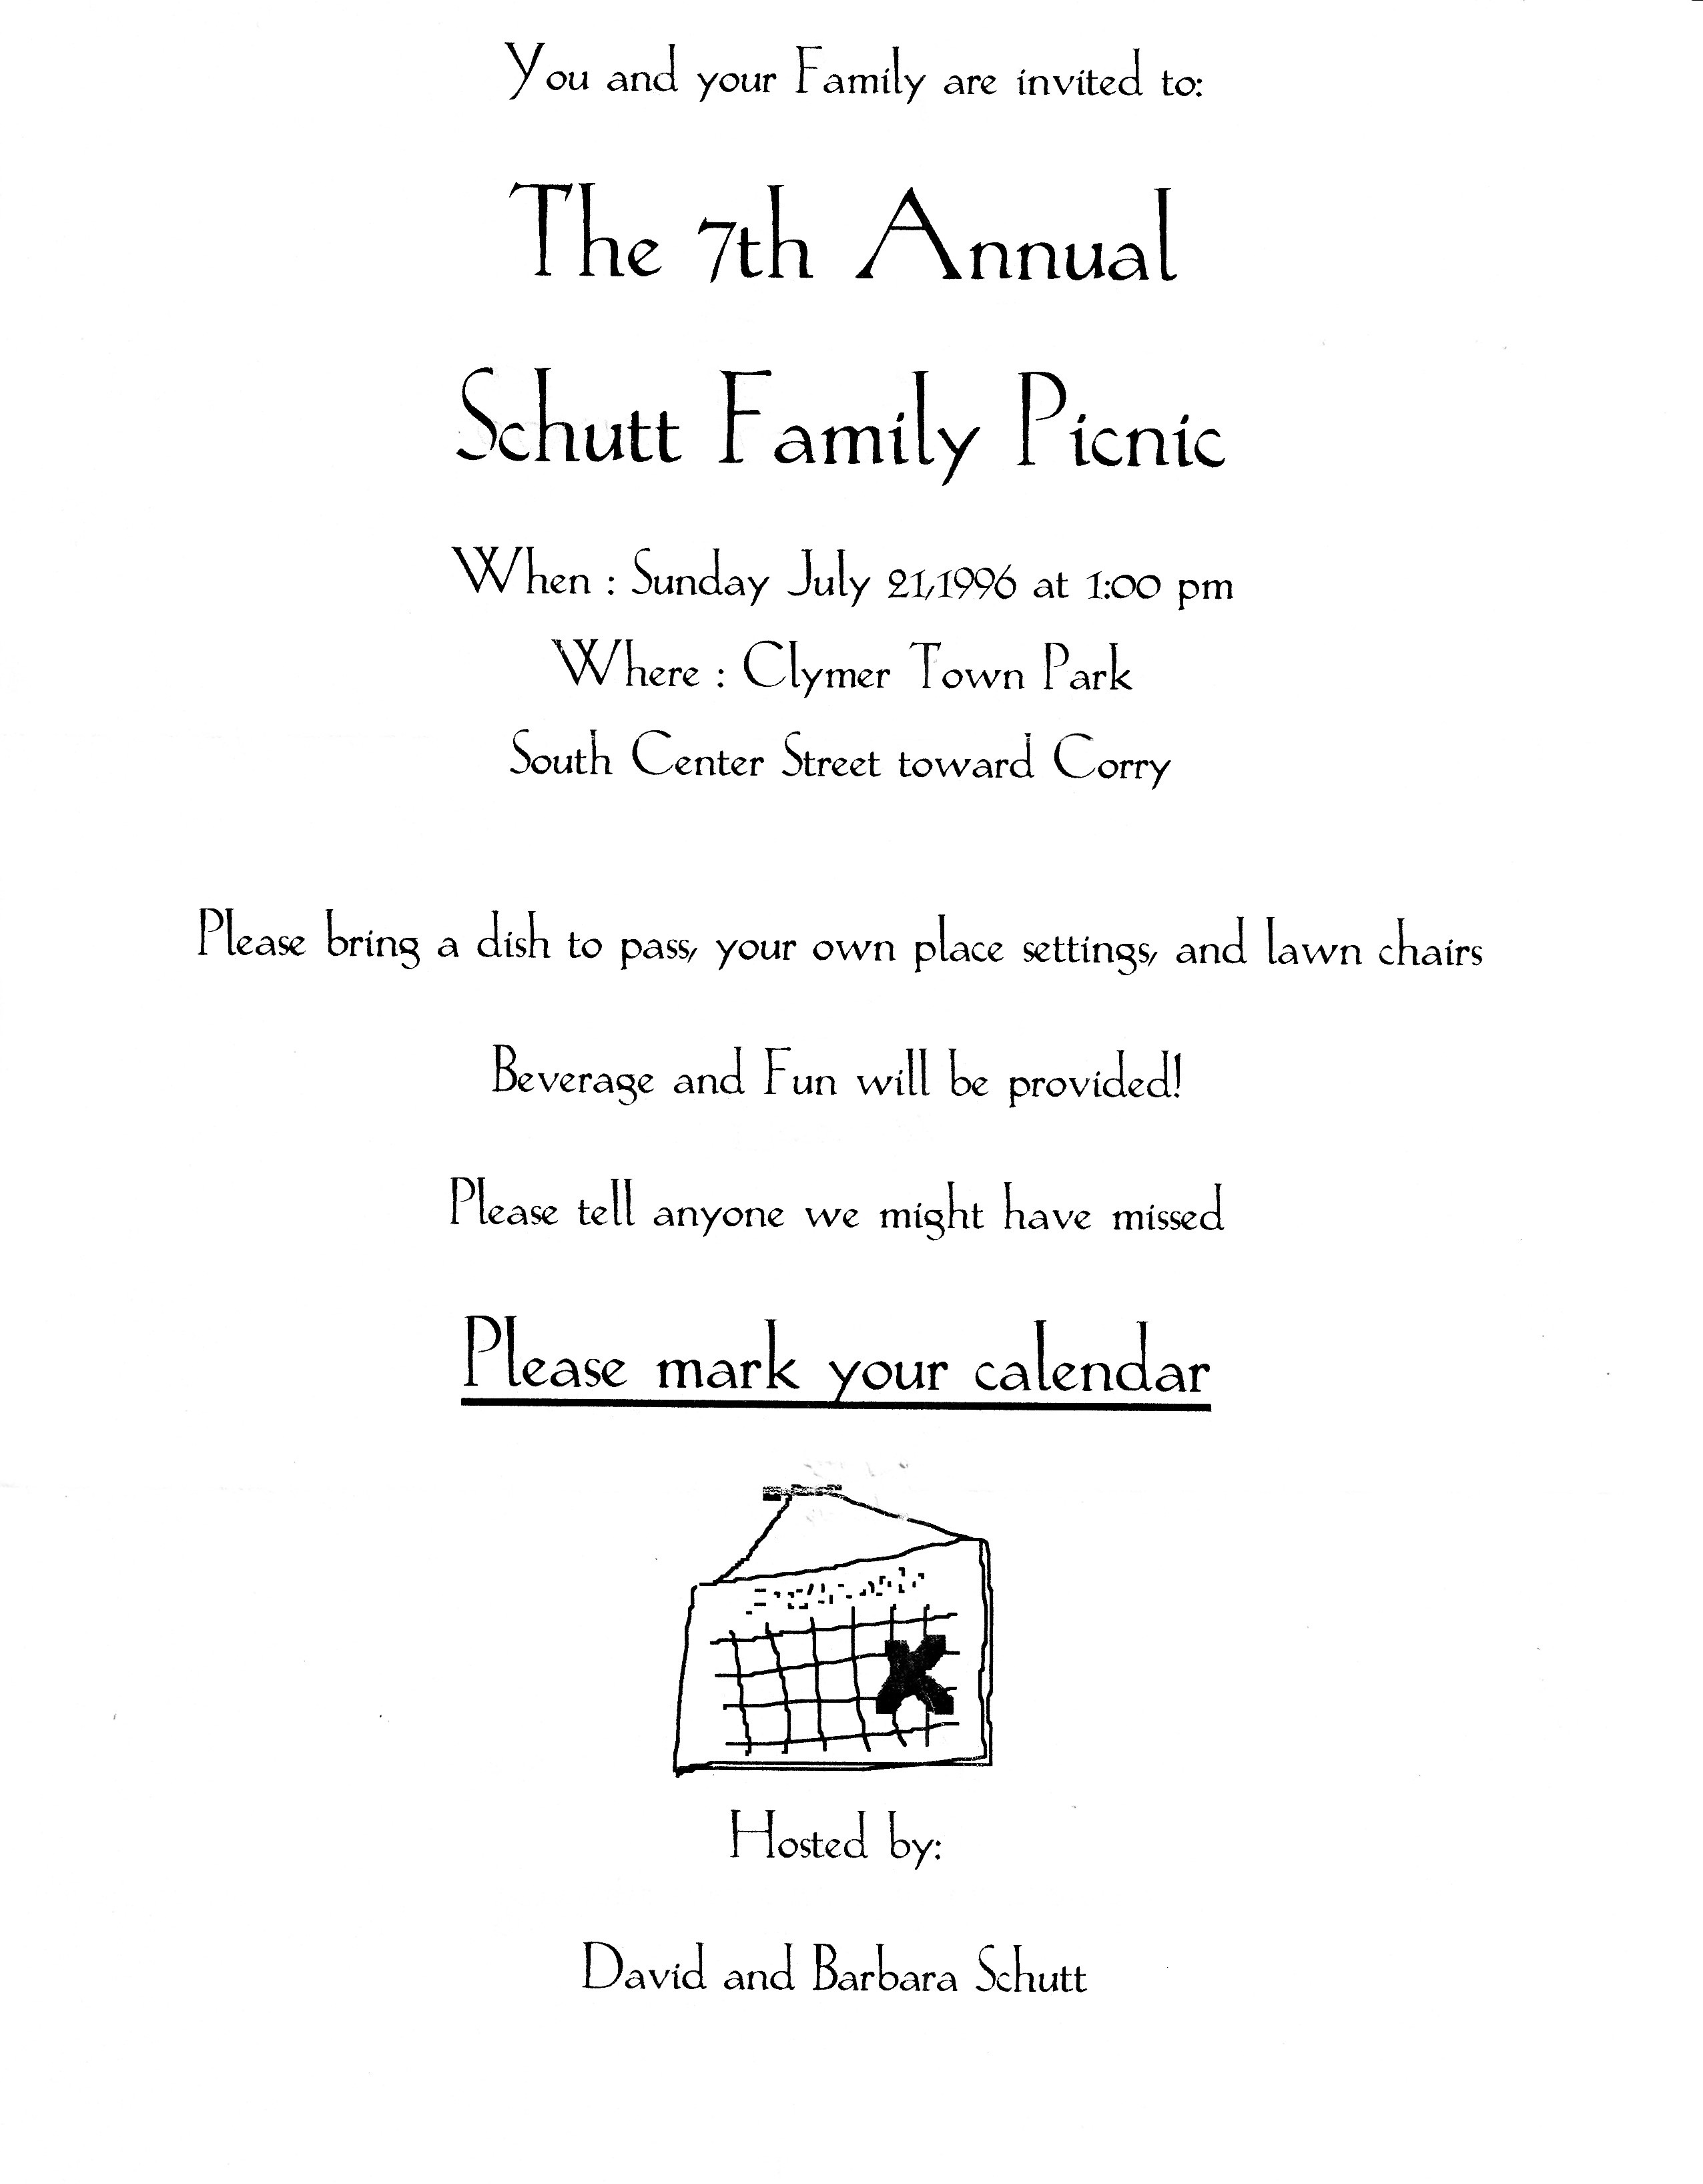 You and your Family are invited to:
The 7th Annual
Schutt Family Picnic
When : Sunday July 21,1996 at 1:00 pm
Where : Clymer Town Park
South Center Street toward Corry
Please bring a dish to pass, your own place settings, and lawn chairs
Beverage and Fun will be provided!
Please tell anyone we might have missed
Please mark your calendar
Hosted by:
David and Barbara Schutt